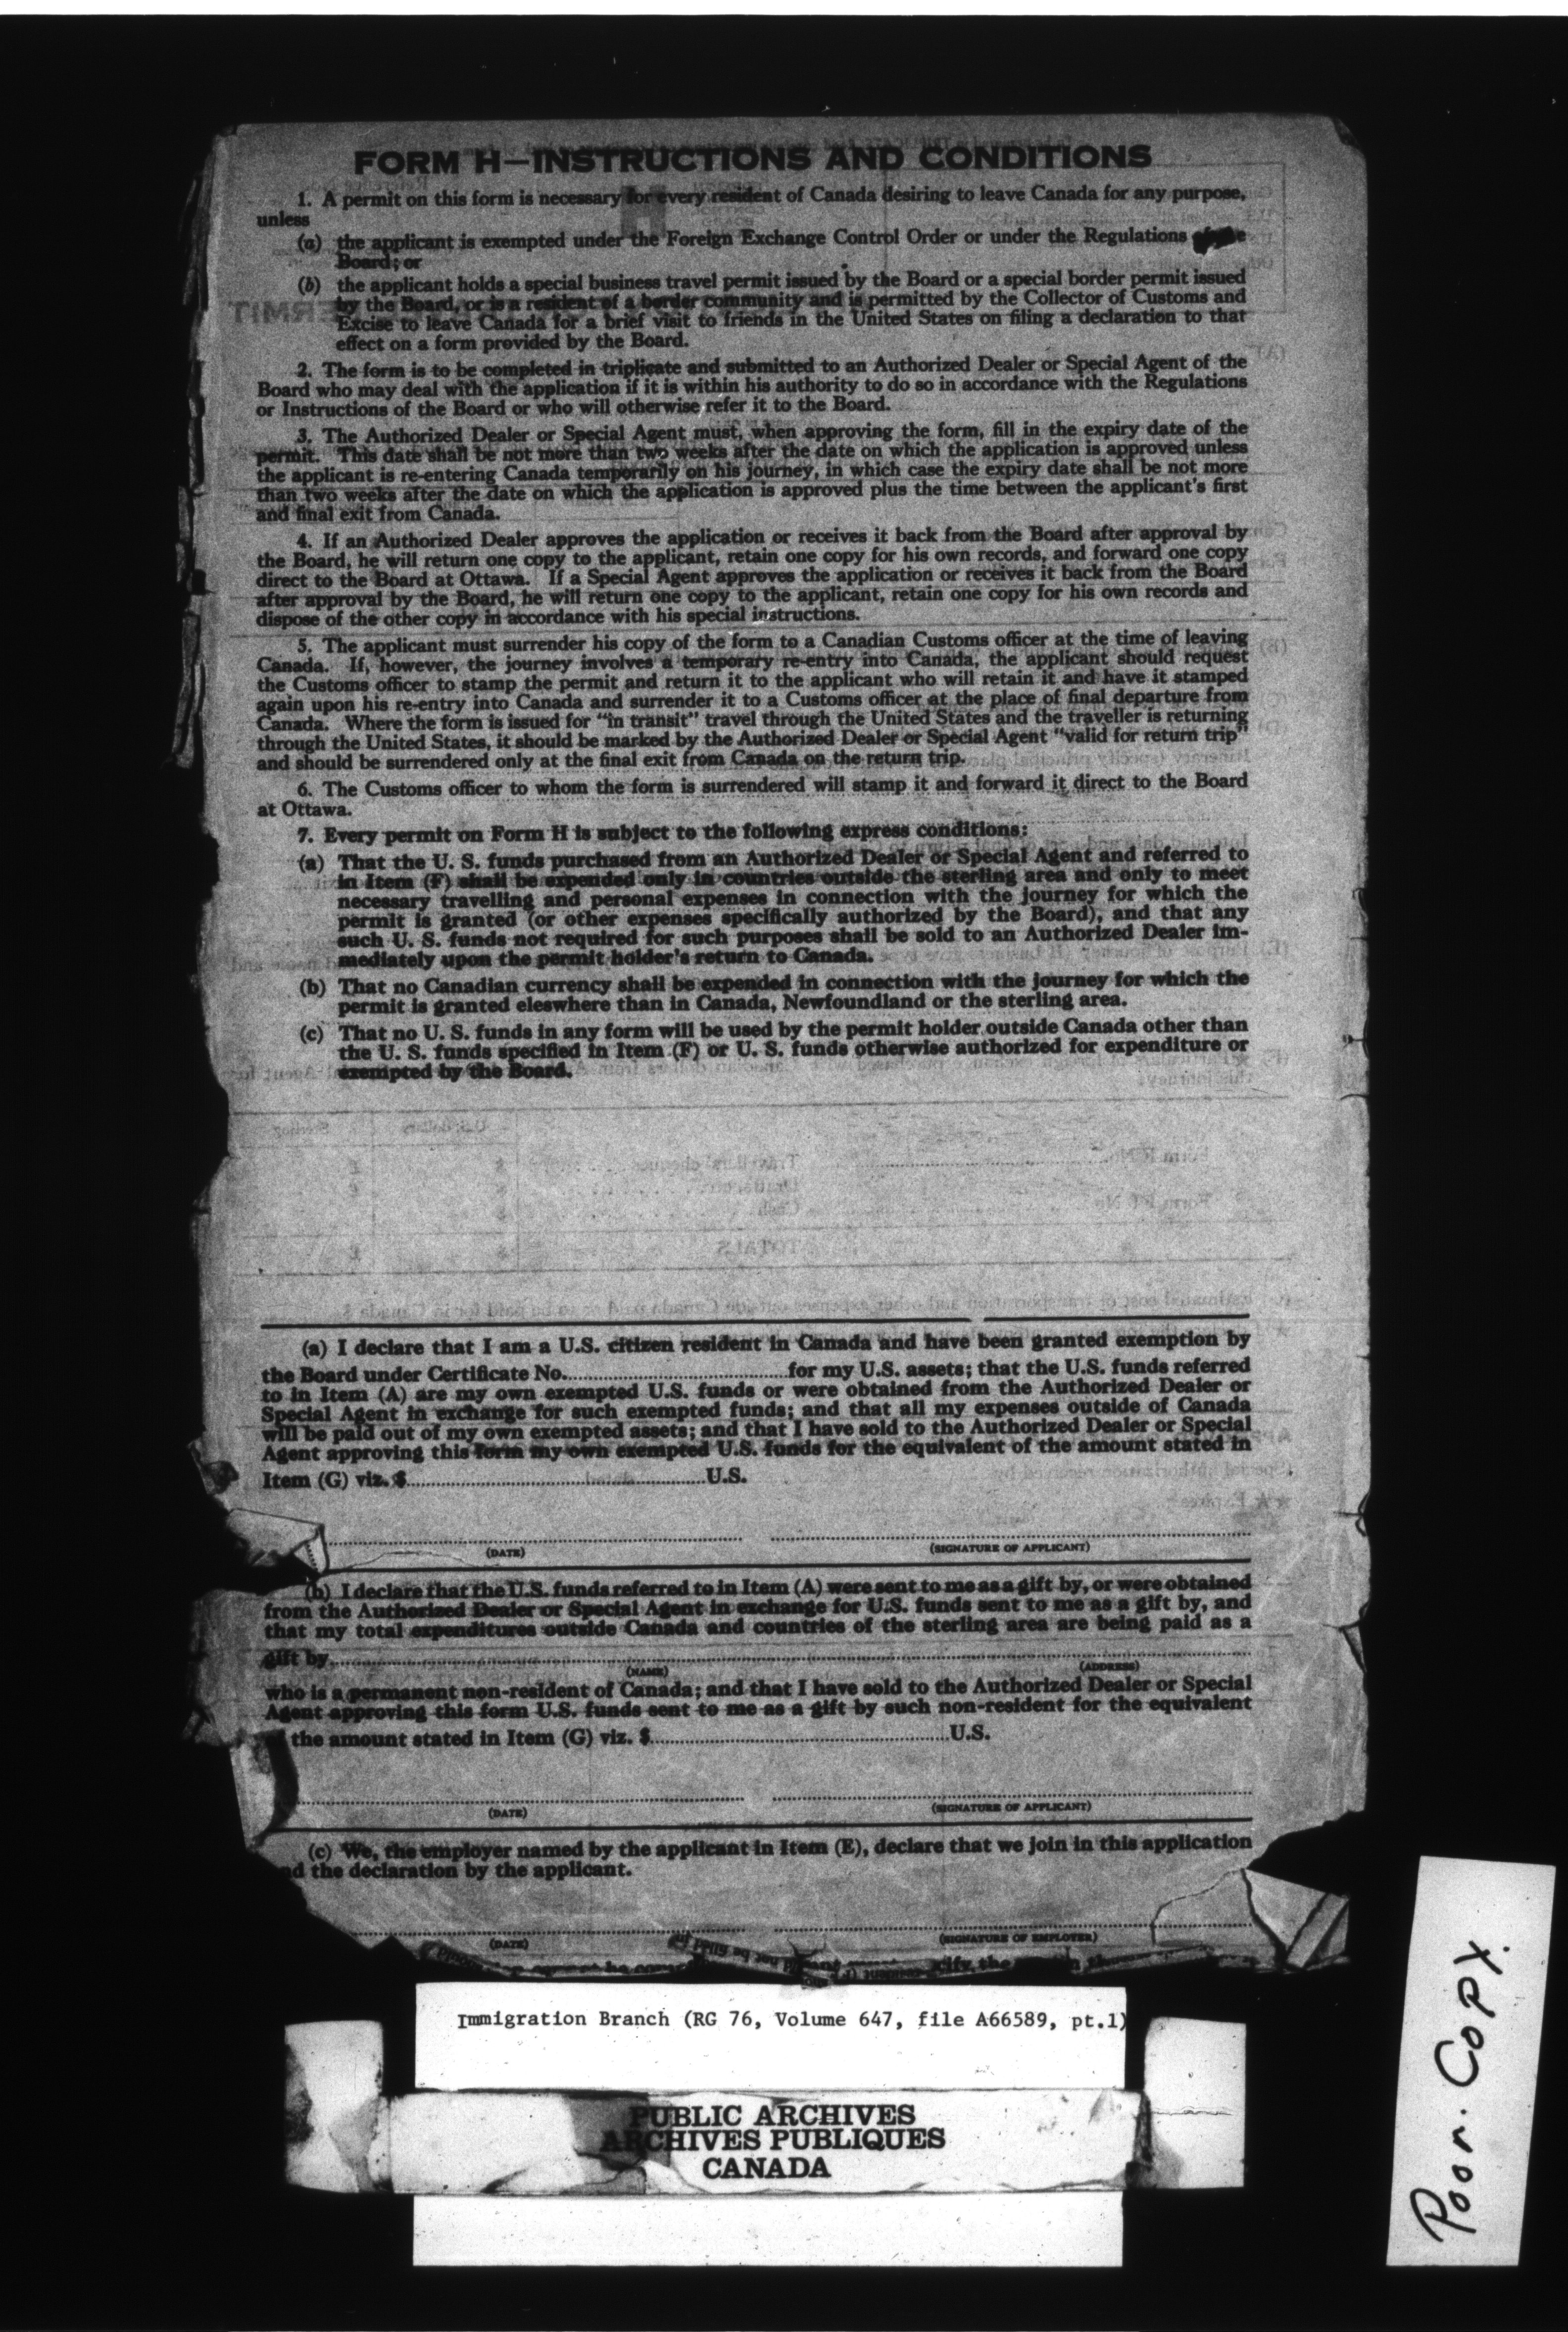 FORM H—INSTRUCTIONS AND CONDITIONS
1. A permit on this form is necessary for every resident of Canada desiring to leave Canada for any purpose,
unless
(a) the applicant is exempted under the Foreign Exchange Control Order or under the Regulations
Board; or
(b) the applicant holds a special business travel permit issued by the Board or a special border permit issued
by the Board, or is a resident of a border community and is permitted by the Collector of Customs and
Excise to leave Canada for a brief visit to friends in the United States on filing a declaration to that
effect on a form provided by the Board.
2. The form is to be completed in triplicate and submitted to an Authorized Dealer or Special Agent of the
Board who may deal with the application if it is within his authority to do so in accordance with the Regulations
or Instructions of the Board or who will otherwise refer it to the Board.
3. The Authorized Dealer or Special Agent must, when approving the form, fill in the expiry date of the
permit. This date shall be not more than two weeks after the date on which the application is approved unless
the applicant is re-entering Canada temporarily on his journey, in which case the expiry date shall be not more
than two weeks after the date on which the application is approved plus the time between the applicant's first
and final exit from Canada.
4. If an Authorized Dealer approves the application or receives it back from the Board after approval by
the Board, he will return one copy to the applicant, retain one copy for his own records, and forward one copy
direct to the Board at Ottawa. If a Special Agent approves the application or receives it back from the Board
after approval by the Board, he will return one copy to the applicant, retain one copy for his own records and
dispose of the other copy in accordance with his special instructions.
5. The applicant must surrender his copy of the form to a Canadian Customs officer at the time of leaving
Canada. If, however, the journey involves a temporary re-entry into Canada, the applicant should request
the Customs officer to stamp the permit and return it to the applicant who will retain it and have it stamped
again upon his re-entry into Canada and surrender it to a Customs officer at the place of final departure from
Canada. Where the form is issued for "in transit" travel through the United States and the traveller is returning
through the United States, it should be marked by the Authorized Dealer or Special Agent "valid for return trip"
and should be surrendered only at the final exit from Canada on the return trip.
6. The Customs officer to whom the form is surrendered will stamp it and forward it direct to the Board
at Ottawa.
7. Every permit on Form H is subject to the following express conditions:
(a) That the U. S. funds purchased from an Authorized Dealer or Special Agent and referred to
in Item (F) shall be expended only in countries outside the sterling area and only to meet
necessary travelling and personal expenses in connection with the journey for which the
permit is granted (or other expenses specifically authorized by the Board), and that any
such U. S. funds not required for such purposes shall be sold to an Authorized Dealer im-
mediately upon the permit holder's return to Canada.
(b) That no Canadian currency shall be expended in connection with the journey for which the
permit is granted eleswhere than in Canada, Newfoundland or the sterling area.
(c) That no U. S. funds in any form will be used by the permit holder outside Canada other than
the U. S. funds specified in Item (F) or U. S. funds otherwise authorized for expenditure or
exempted by the Board.
(a) I declare that I am a U.S. citizen resident in Canada and have been granted exemption by
the Board under Certificate No.............for my U.S. assets; that the U.S. funds referred
to in Item (A) are my own exempted U.S. funds or were obtained from the Authorized Dealer or
Special Agent in exchange for such exempted funds; and that all my expenses outside of Canada
will be paid out of my own exempted assets; and that I have sold to the Authorized Dealer or Special
Agent approving this form my own exempted U.S. funds for the equivalent of the amount stated in
Item (G) viz. $.............U.S.
(DATE) (SIGNATURE OF APPLICANT)
(b) I declare that the U.S. funds referred to in Item (A) were sent to me as a gift by, or were obtained
from the Authorized Dealer or Special Agent in exchange for U.S. funds sent to me as a gift by, and
that my total expenditures outside Canada and countries of the sterling area are being paid as a
gift by.............
(NAME) (ADDRESS)
who is a permanent non-resident of Canada; and that I have sold to the Authorized Dealer or Special
Agent approving this form U.S. funds sent to me as a gift by such non-resident for the equivalent
the amount stated in Item (G) viz. $.............U.S.
(DATE) (SIGNATURE OF APPLICANT)
(c) We, the employer named by the applicant in Item (E), declare that we join in this application
nd the declaration by the applicant.
(DATE) (SIGNATURE OF EMPLOYER)
Immigration Branch (RG 76, Volume 647, file A66589, pt.1)
PUBLIC ARCHIVES
ARCHIVES PUBLIQUES
CANADA
Poor. Copy.